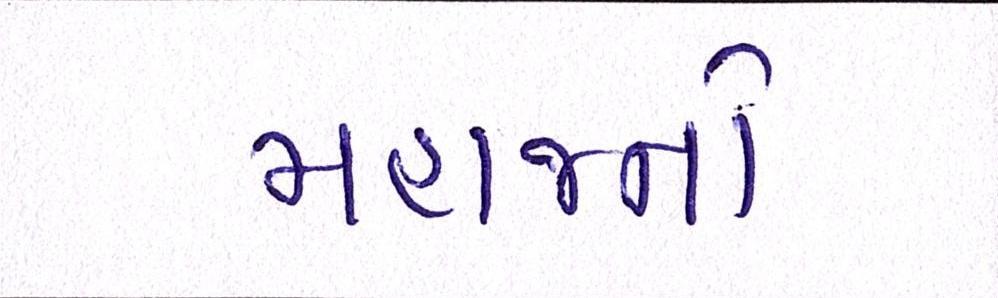 મહાજનો